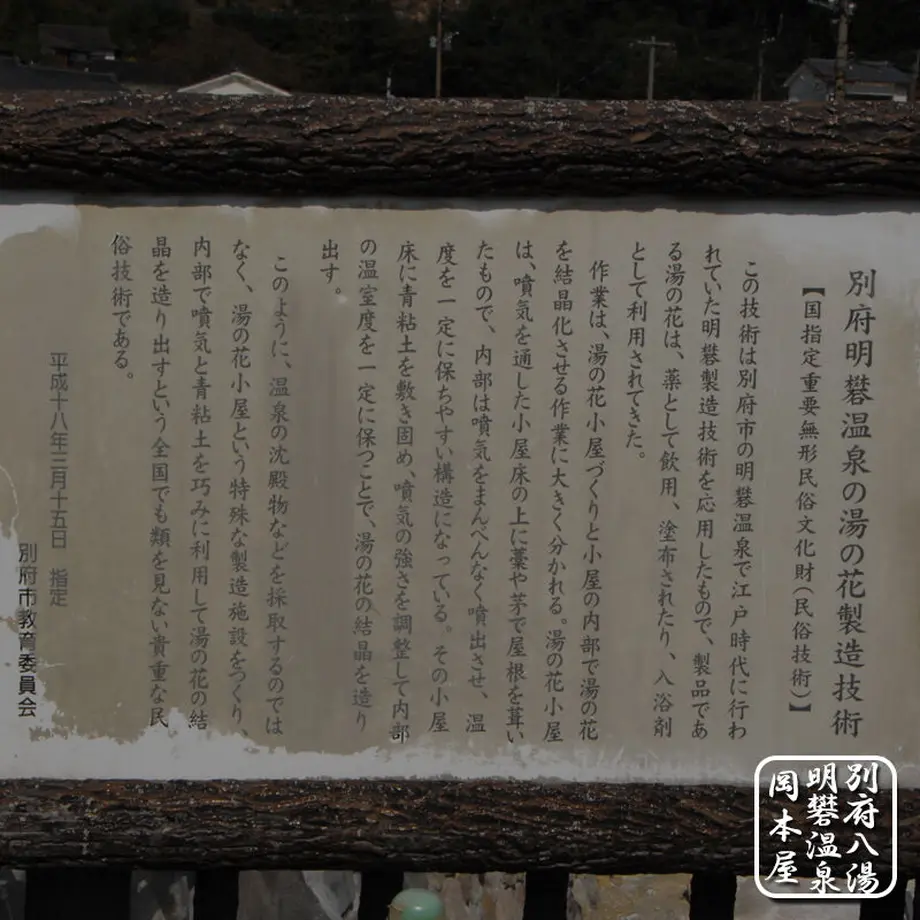 別府明礬温泉の湯の花製造技術
【国指定重要無形民俗文化財(民俗技術)】
この技術は別府市の明礬温泉で江戸時代に行わ
れていた明礬製造技術を応用したもので、製品であ
る湯の花は、薬として飲用、塗布されたり、入浴剤
として利用されてきた。
作業は、湯の花小屋づくりと小屋の内部で湯の花
を結晶化させる作業に大きく分かれる。湯の花小屋
は、噴気を通した小屋床の上に藁や茅で屋根を葺い
たもので、内部は噴気をまんべんなく噴出させ、温
度を一定に保ちやすい構造になっている。その小屋
床に青粘土を敷き固め、噴気の強さを調整して内部
の温室度を一定に保つことで、湯の花の結晶を造り
出す。
このように、温泉の沈殿物などを採取するのでは
なく、湯の花小屋という特殊な製造施設をつくり、
内部で噴気と青粘土を巧みに利用して湯の花の結
晶を造り出すという全国でも類を見ない貴重な民
俗技術である。
平成十八年三月十五日 指定
別府市教育委員会
別府八湯
明礬温泉
岡本屋